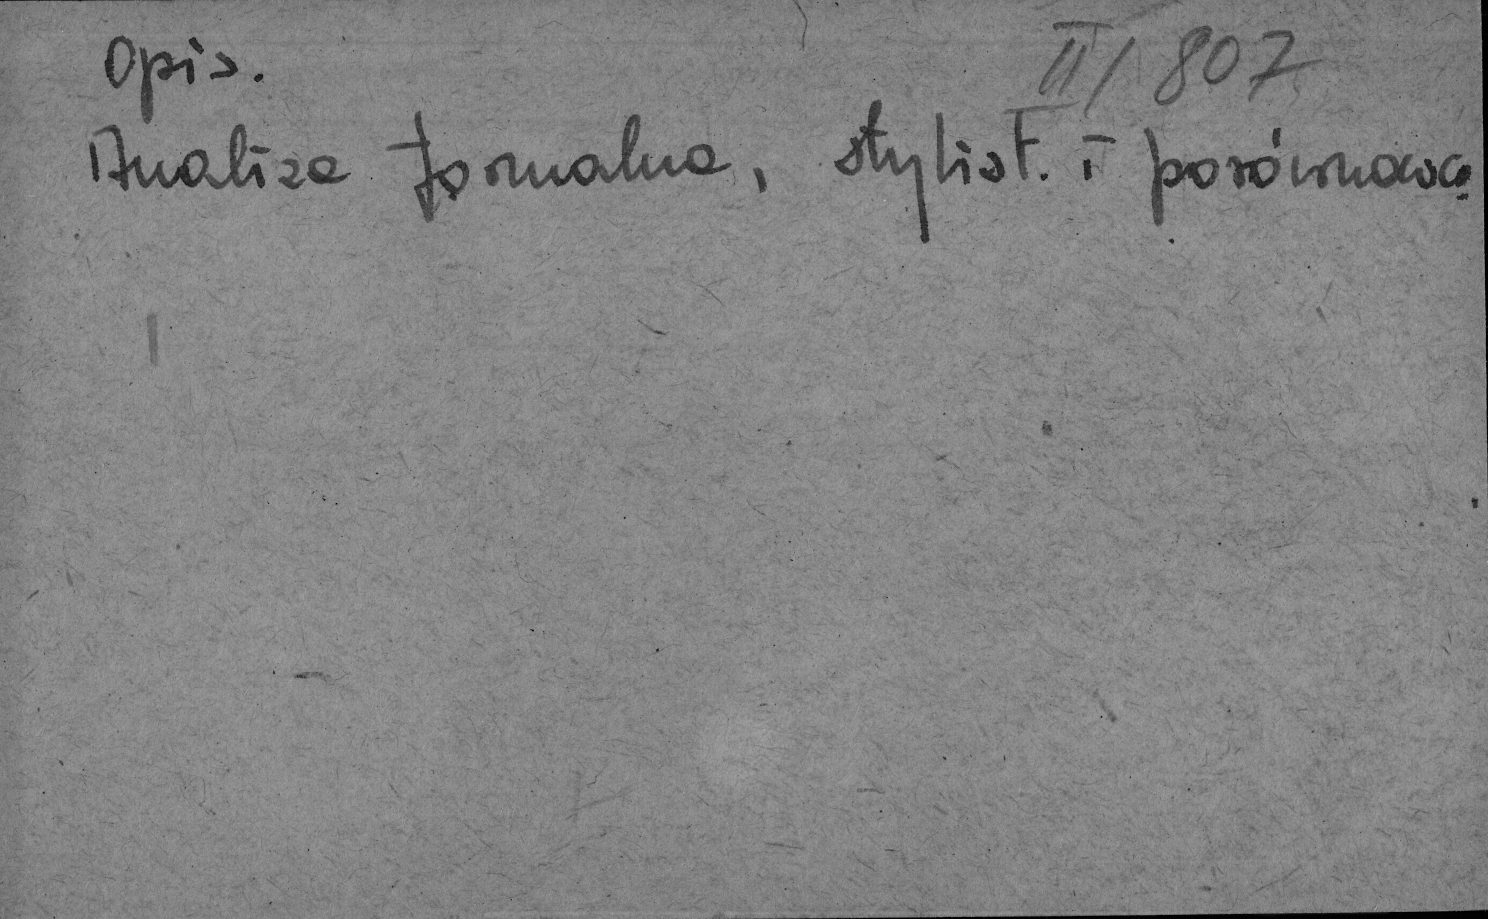 Opis. II/807
Analiza formalna, stylist. i porównawcza